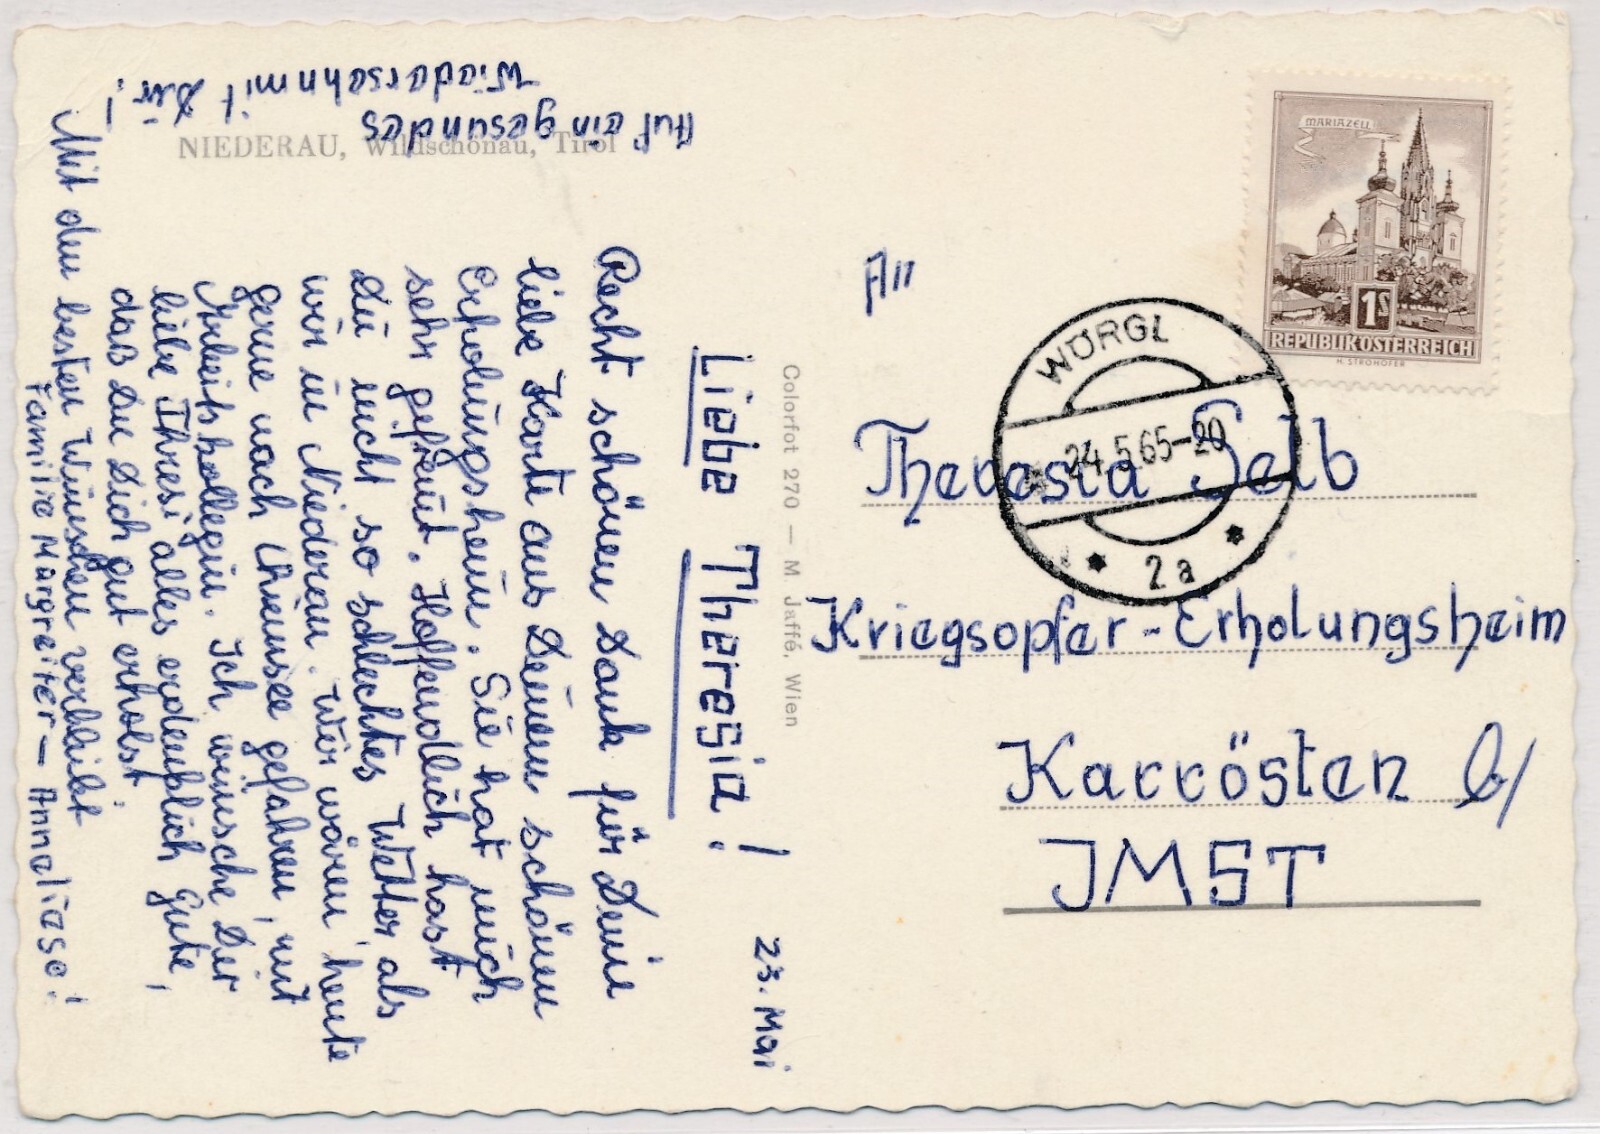 23. Mai
Liebe Theresia!
Recht schönen Dank für Deine
liebe Karte aus Deinem schönen
Erholungsheim. Sie hat mich
sehr gefreut. Hoffendlich hast
Du nicht so schlechtes Wetter, als
wir in Niederau. Wir wären heute
gerne nach Chiemsee gefahren, mit
Arbeitskollegin. Ich wünsche Dir
liebe Thresi alles erdenklich Gute,
daß Du Dich gut erholst.
Mit den besten Wünschen verbleibt
Familie Margreiter - Anneliese!
Auf ein gesundes
Wiedersehn mit Dir!
NIEDERAU, Wildschönau, Tirol
Colorfot 270 — M. Jaffé, Wien
An
Theresia Selb
Kriegsopfer-Erholungsheim
Karrösten b/
JMST
MARIAZELL
1S
REPUBLIK ÖSTERREICH
H. STROHOFER
WÖRGL
24.5.65-20
2a